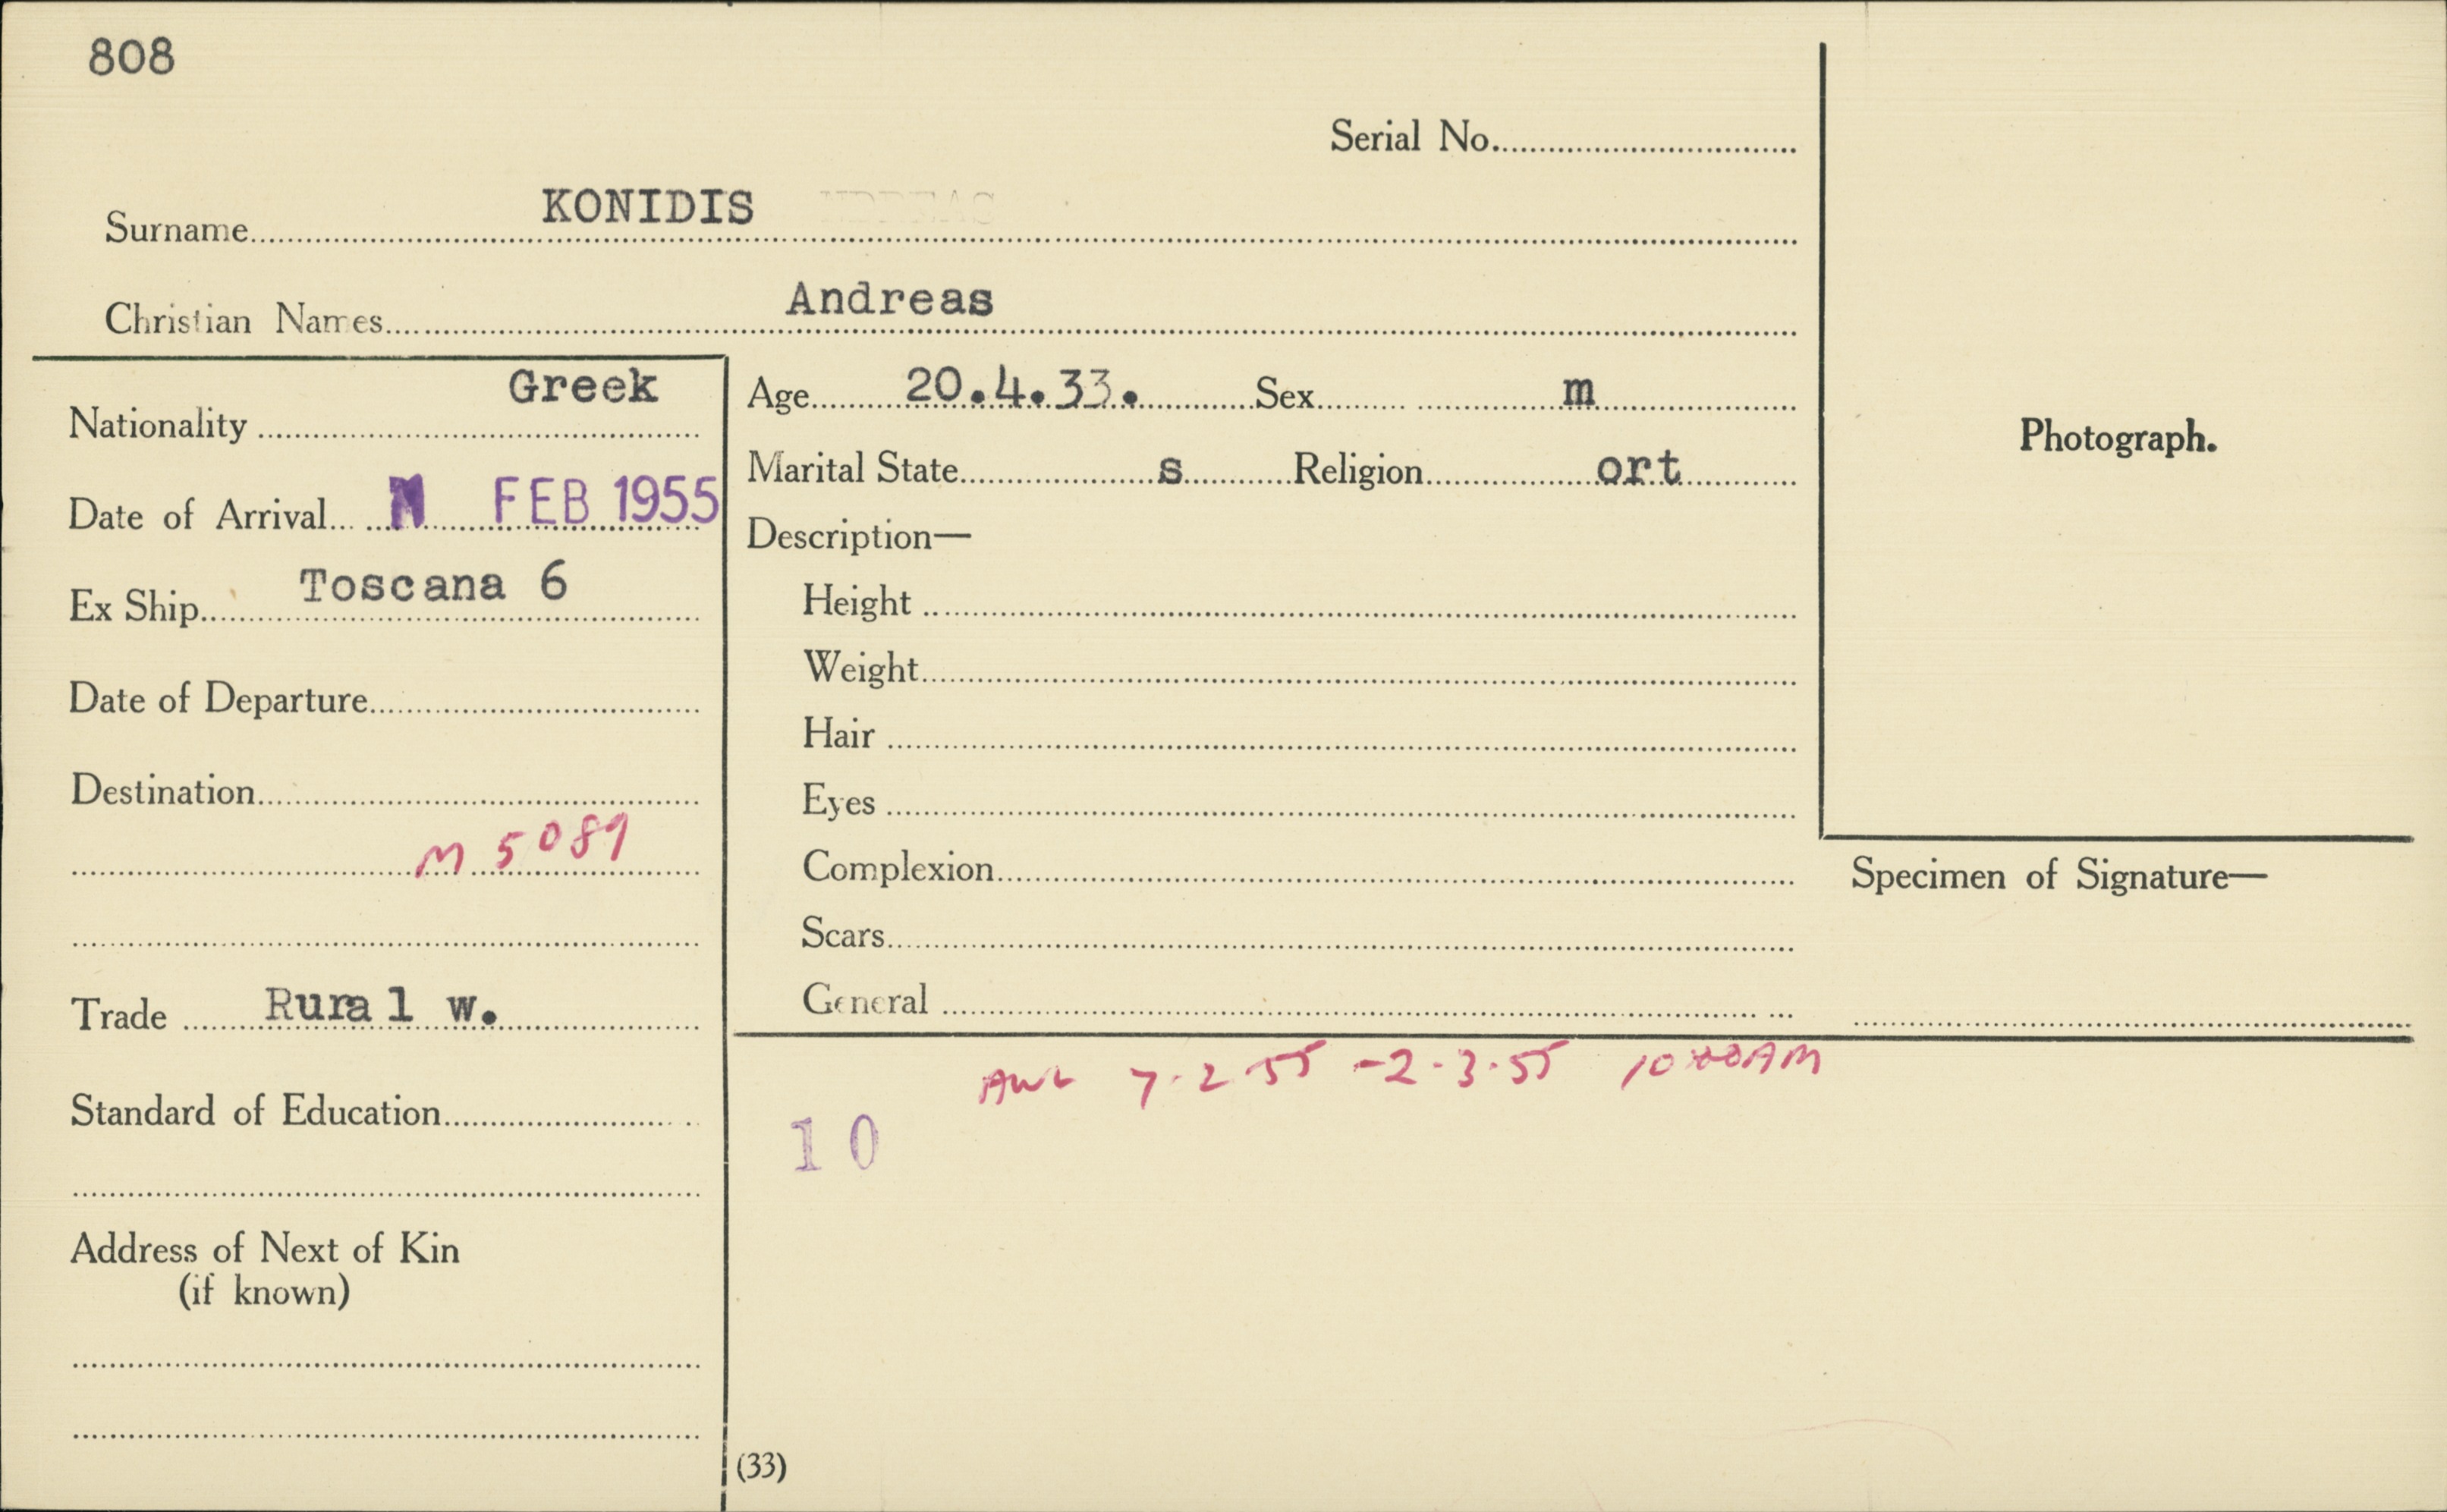 808
Serial No.
Surname KONIDIS
Christian Names Andreas
Nationality Greek
Date of Arrival FEB 1955
Ex Ship Toscana 6
Date of Departure
Destination
M 5089
Trade Rural w.
Standard of Education
Address of Next of Kin
(if known)
Age 20.4.33. Sex m
Marital State s Religion ort
Description—
Height
Weight
Hair
Eyes
Complexion
Scars
General
Photograph.
Specimen of Signature—
AWL 7.2.55 - 2.3.55 10 AM
10
(33)